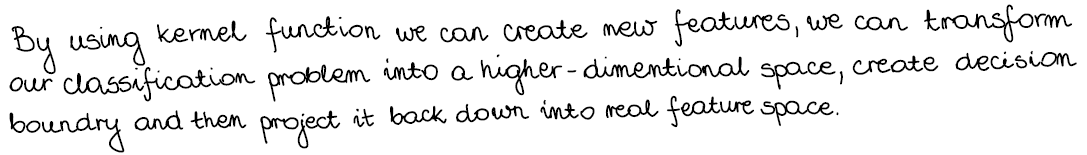 By using kernel function we can create new features, we can transform
our classification problem into a higher-dimentional space, create decision
boundry and then project it back down into real feature space.